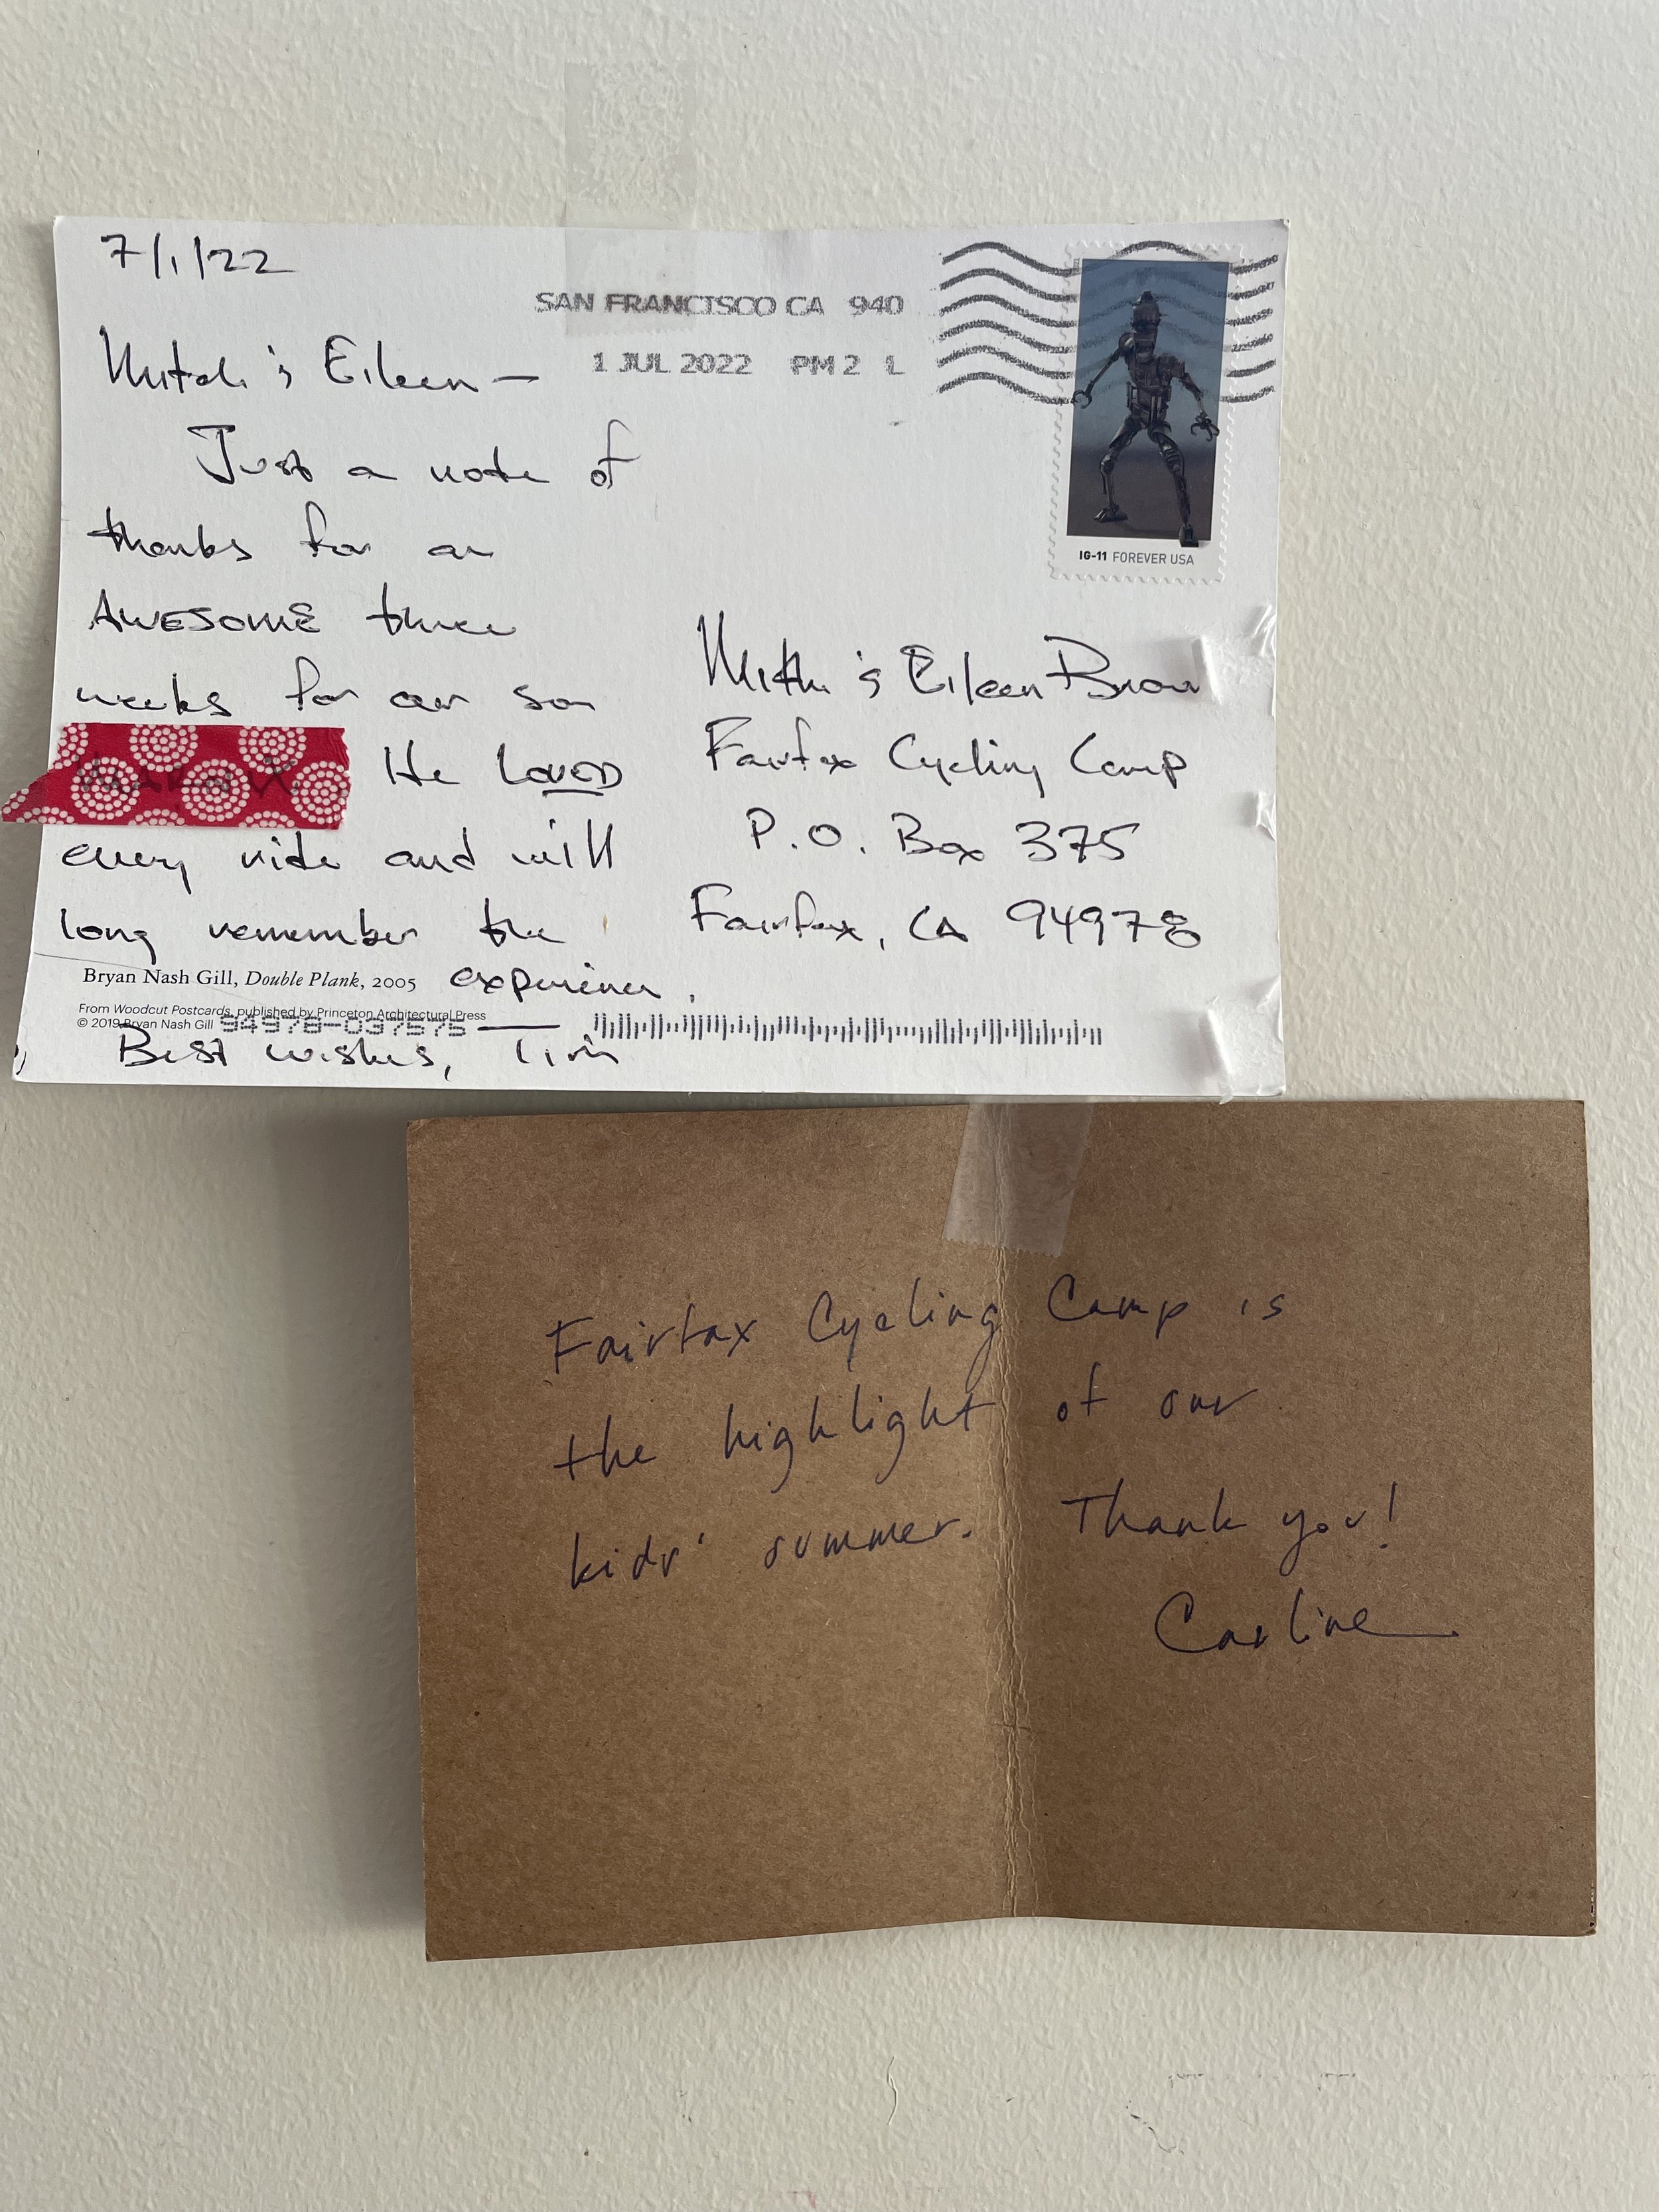 7/1/22
SAN FRANCISCO CA 940
1 JUL 2022 PM 2 L
IG-11 FOREVER USA
Mitch & Eileen —
Just a note of
thanks for an
AWESOME three
weeks for our son
He LOVED
every ride and will
long remember the
experience.
Best wishes, Tim
Mitch & Eileen Brown
Fairfax Cycling Camp
P.O. Box 375
Fairfax, CA 94978
Bryan Nash Gill, Double Plank, 2005
From Woodcut Postcards, published by Princeton Architectural Press
© 2019 Bryan Nash Gill
94978-037575
Fairfax Cycling Camp is
the highlight of our
kids' summer. Thank you!